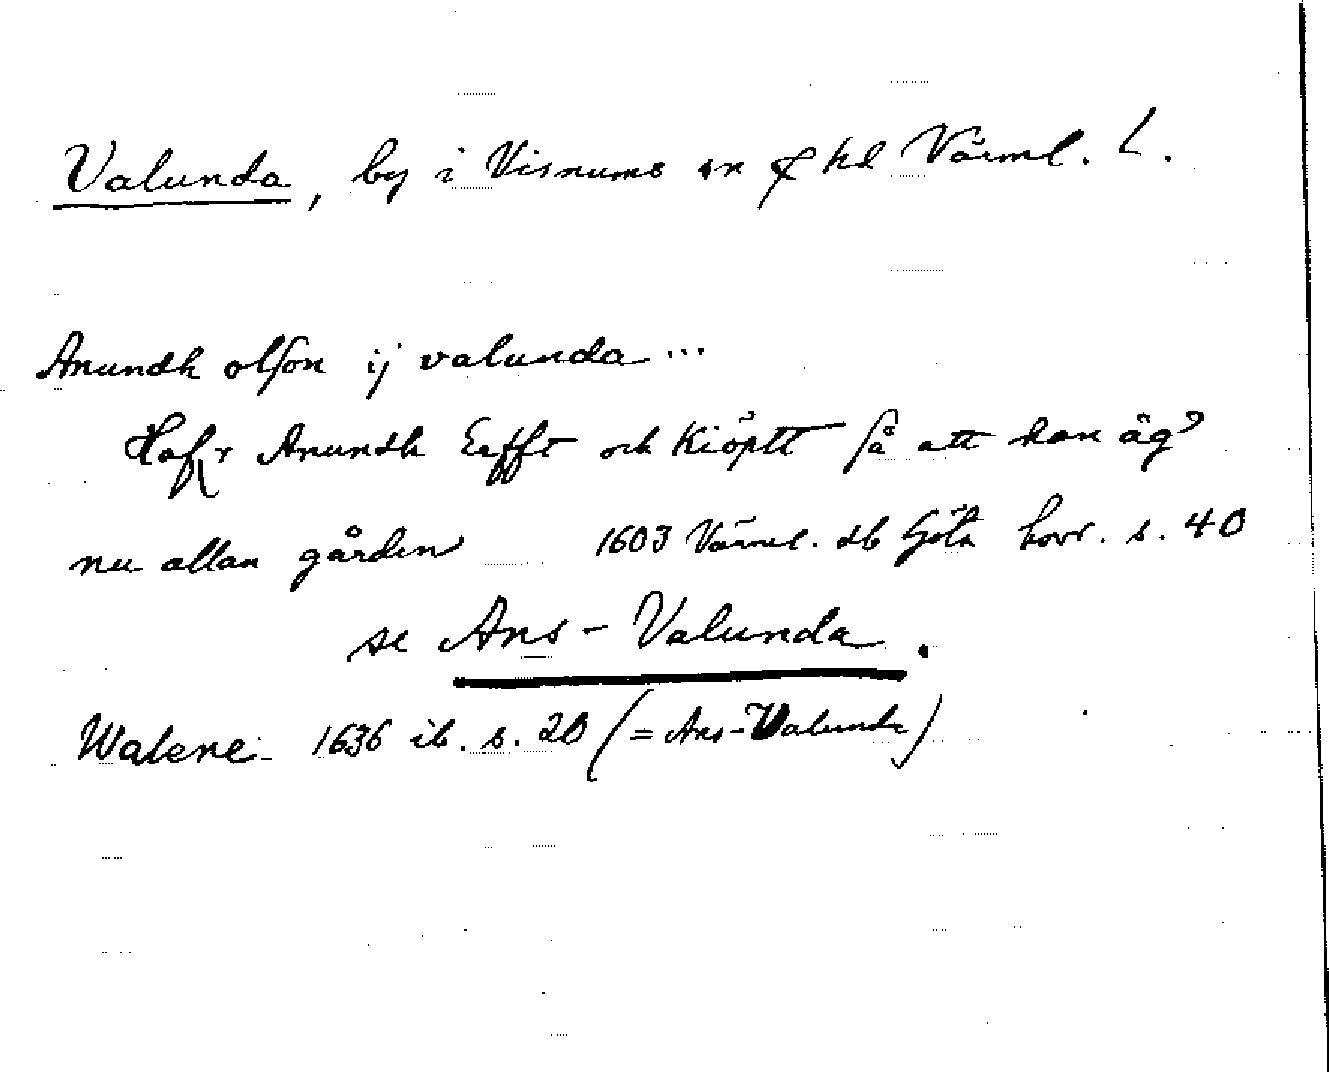 Valunda, by i Visnums sn o hd Värml. L.
Anundh olson ij valunda...
Hafr Anundh Erfft och Kiöptt så att han äg
nu allan gården 1603 Värml. db Göta hovr. s. 40
se Ans-Valunda.
Walene 1636 ib. s. 20 (= Ans-Valunda)